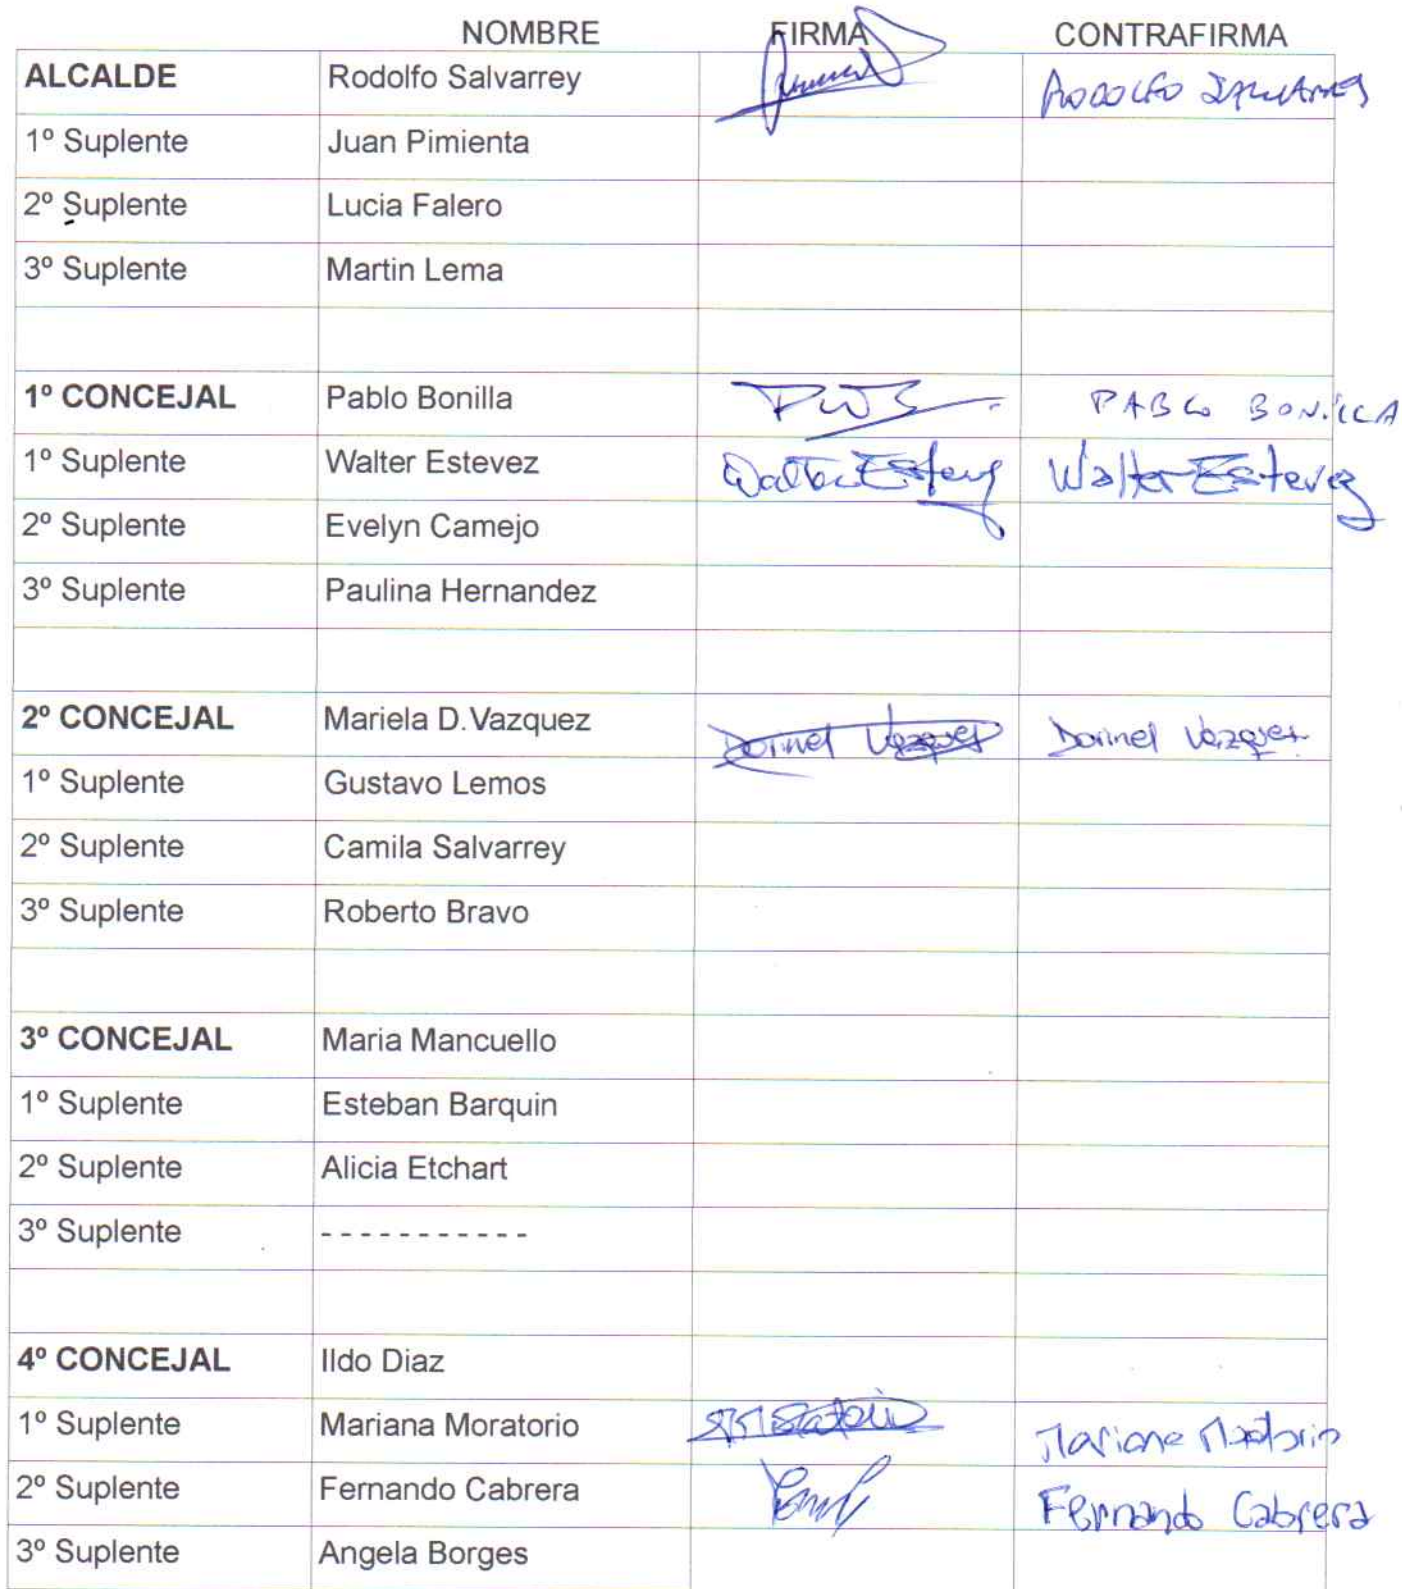 NOMBRE FIRMA CONTRAFIRMA
ALCALDE Rodolfo Salvarrey RODOLFO SALVARREY
1º Suplente Juan Pimienta
2º Suplente Lucia Falero
3º Suplente Martin Lema
1º CONCEJAL Pablo Bonilla PABLO BONILLA
1º Suplente Walter Estevez Walter Estevez Walter Estevez
2º Suplente Evelyn Camejo
3º Suplente Paulina Hernandez
2º CONCEJAL Mariela D.Vazquez Dorinel Vazquez Dorinel Vazquez
1º Suplente Gustavo Lemos
2º Suplente Camila Salvarrey
3º Suplente Roberto Bravo
3º CONCEJAL Maria Mancuello
1º Suplente Esteban Barquin
2º Suplente Alicia Etchart
3º Suplente - - - - - - - - - - -
4º CONCEJAL Ildo Diaz
1º Suplente Mariana Moratorio Mariana Moratorio
2º Suplente Fernando Cabrera Fernando Cabrera
3º Suplente Angela Borges